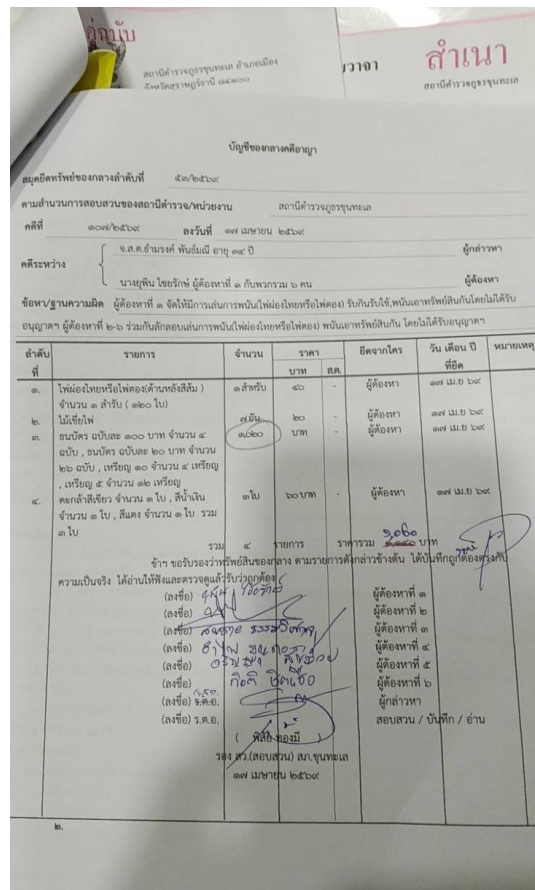 คู่ฉบับ
สถานีตำรวจภูธรขุนทะเล อำเภอเมือง
จังหวัดสุราษฎร์ธานี ๘๔๑๐๐
วาจา
สำเนา
สถานีตำรวจภูธรขุนทะเล
บัญชีของกลางคดีอาญา
สมุดยึดทรัพย์ของกลางลำดับที่ ๕๓/๒๕๖๙
ตามสำนวนการสอบสวนของสถานีตำรวจ/หน่วยงาน สถานีตำรวจภูธรขุนทะเล
คดีที่ ๑๐๗/๒๕๖๙ ลงวันที่ ๑๗ เมษายน ๒๕๖๙
คดีระหว่าง
จ.ส.ต.ธำมรงค์ พันธ์มณี อายุ ๓๙ ปี ผู้กล่าวหา
นางยุพิน ไชยรักษ์ ผู้ต้องหาที่ ๑ กับพวกรวม ๖ คน ผู้ต้องหา
ข้อหา/ฐานความผิด ผู้ต้องหาที่ ๑ จัดให้มีการเล่นการพนัน(ไพ่ผ่องไทยหรือไพ่ตอง) รับกินรับใช้,พนันเอาทรัพย์สินกันโดยไม่ได้รับ
อนุญาตฯ ผู้ต้องหาที่ ๒-๖ ร่วมกันลักลอบเล่นการพนัน(ไพ่ผ่องไทยหรือไพ่ตอง) พนันเอาทรัพย์สินกัน โดยไม่ได้รับอนุญาตฯ
ลำดับที่ รายการ จำนวน ราคา บาท ส.ต. ยึดจากใคร วัน เดือน ปี ที่ยึด หมายเหตุ
๑. ไพ่ผ่องไทยหรือไพ่ตอง(ด้านหลังสีส้ม) ๑ สำหรับ ๔๐ - ผู้ต้องหา ๑๗ เม.ย ๖๙
จำนวน ๑ สำรับ ( ๑๒๐ ใบ)
๒. ไม้เขี่ยไพ่ ๗ อัน ๒๐ - ผู้ต้องหา ๑๗ เม.ย ๖๙
๓. ธนบัตร ฉบับละ ๑๐๐ บาท จำนวน ๔ ๑,๐๒๐ บาท - ผู้ต้องหา ๑๗ เม.ย ๖๙
ฉบับ , ธนบัตร ฉบับละ ๒๐ บาท จำนวน
๒๖ ฉบับ , เหรียญ ๑๐ จำนวน ๔ เหรียญ
, เหรียญ ๕ จำนวน ๑๒ เหรียญ
๔. ตะกล้าสีเขียว จำนวน ๑ ใบ , สีน้ำเงิน ๓ ใบ ๖๐ บาท - ผู้ต้องหา ๑๗ เม.ย ๖๙
จำนวน ๑ ใบ , สีแดง จำนวน ๑ ใบ รวม
๓ ใบ
รวม ๔ รายการ ราคารวม บาท
ข้าฯ ขอรับรองว่าทรัพย์สินของกลาง ตามรายการดังกล่าวข้างต้น ได้บันทึกถูกต้องตรงกับ
ความเป็นจริง ได้อ่านให้ฟังและตรวจดูแล้วรับว่าถูกต้อง
(ลงชื่อ) ผู้ต้องหาที่ ๑
(ลงชื่อ) ผู้ต้องหาที่ ๒
(ลงชื่อ) ผู้ต้องหาที่ ๓
(ลงชื่อ) ผู้ต้องหาที่ ๔
(ลงชื่อ) ผู้ต้องหาที่ ๕
(ลงชื่อ) ผู้ต้องหาที่ ๖
(ลงชื่อ) ผู้กล่าวหา
(ลงชื่อ) ร.ต.อ. สอบสวน / บันทึก / อ่าน
( ทองมี )
รอง สว.(สอบสวน) สภ.ขุนทะเล
๑๗ เมษายน ๒๕๖๙
๒.